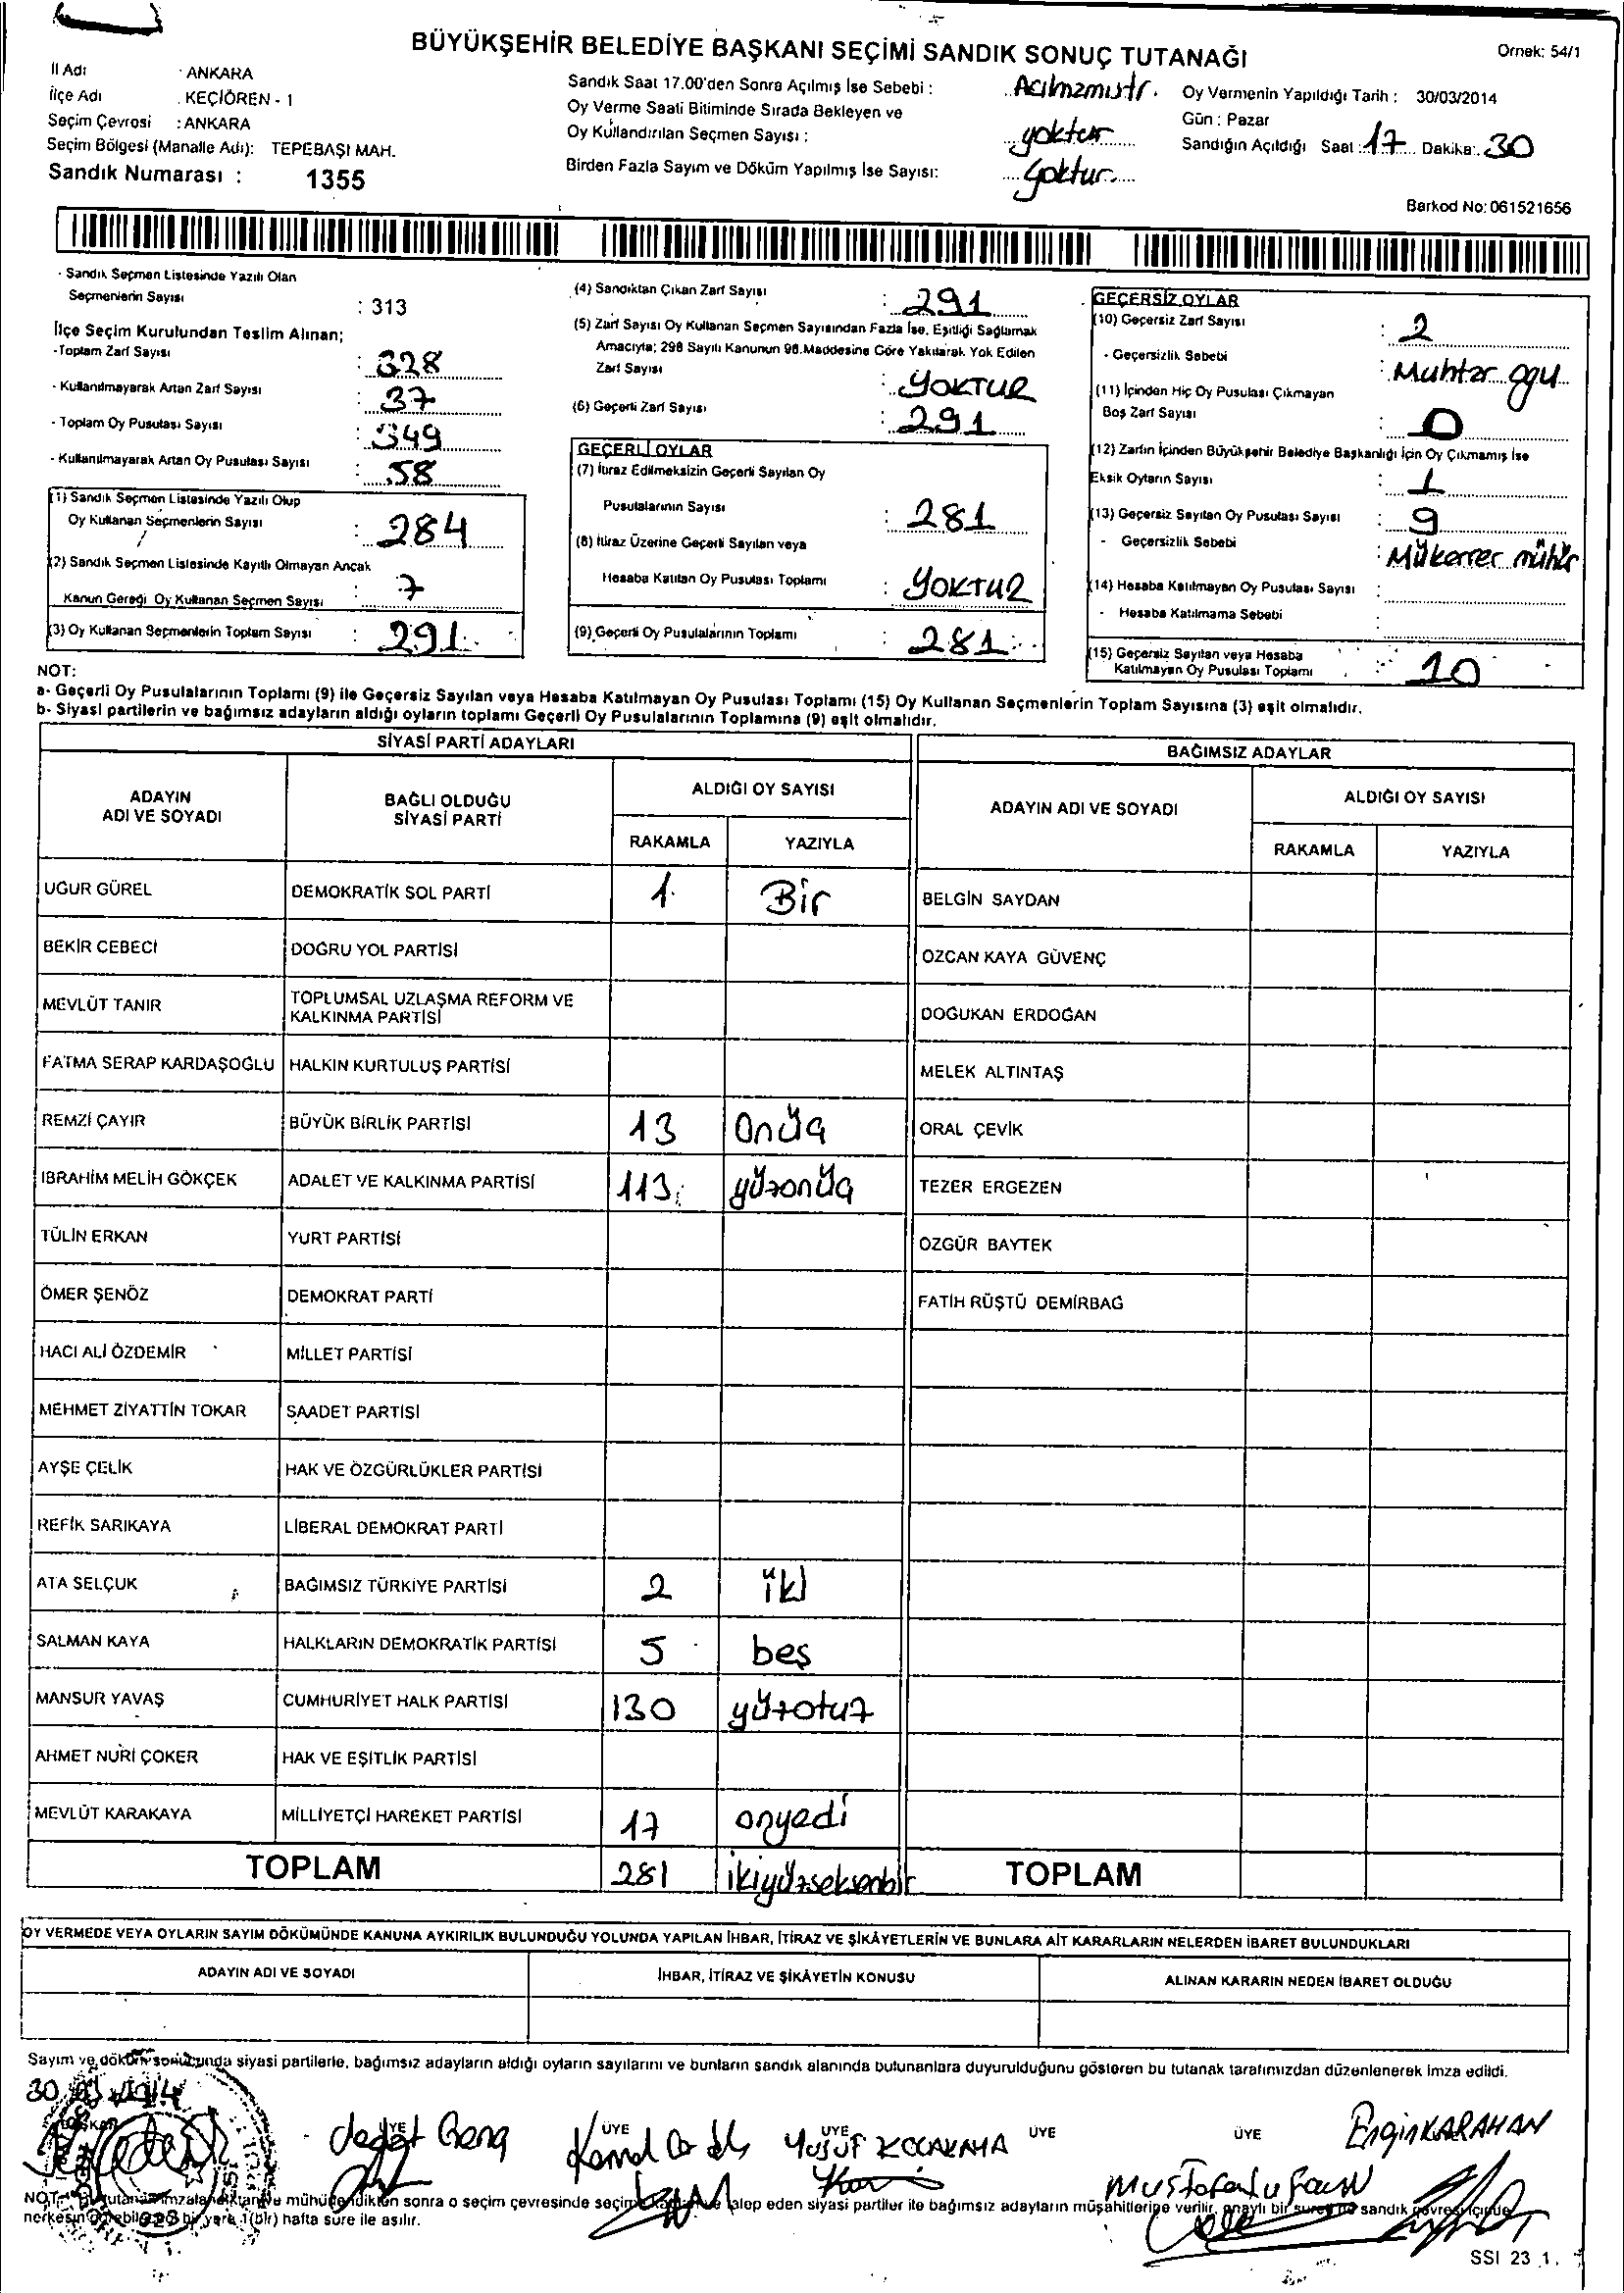 BÜYÜKŞEHİR BELEDİYE BAŞKANI SEÇİMİ SANDIK SONUÇ TUTANAĞI
Örnek: 54/1
İl Adı : ANKARA
İlçe Adı : KEÇİÖREN - 1
Seçim Çevresi : ANKARA
Seçim Bölgesi (Mahalle Adı): TEPEBAŞI MAH.
Sandık Numarası : 1355
Sandık Saat 17.00'den Sonra Açılmış İse Sebebi : Açılmamıştır.
Oy Verme Saati Bitiminde Sırada Bekleyen ve
Oy Kullandırılan Seçmen Sayısı : yoktur
Birden Fazla Sayım ve Döküm Yapılmış İse Sayısı: yoktur
Oy Vermenin Yapıldığı Tarih : 30/03/2014
Gün : Pazar
Sandığın Açıldığı Saat : 17 Dakika: 30
Barkod No: 061521656
- Sandık Seçmen Listesinde Yazılı Olan
Seçmenlerin Sayısı : 313
İlçe Seçim Kurulundan Teslim Alınan;
- Toplam Zarf Sayısı : 328
- Kullanılmayarak Artan Zarf Sayısı : 37
- Toplam Oy Pusulası Sayısı : 349
- Kullanılmayarak Artan Oy Pusulası Sayısı : 58
(1) Sandık Seçmen Listesinde Yazılı Olup
Oy Kullanan Seçmenlerin Sayısı : 284
(2) Sandık Seçmen Listesinde Kayıtlı Olmayan Ancak
Kanun Gereği Oy Kullanan Seçmen Sayısı : 7
(3) Oy Kullanan Seçmenlerin Toplam Sayısı : 291
(4) Sandıktan Çıkan Zarf Sayısı : 291
(5) Zarf Sayısı Oy Kullanan Seçmen Sayısından Fazla İse, Eşitliği Sağlamak
Amacıyla; 298 Sayılı Kanunun 98.Maddesine Göre Yakılarak Yok Edilen
Zarf Sayısı : YOKTUR
(6) Geçerli Zarf Sayısı : 291
GEÇERLİ OYLAR
(7) İtiraz Edilmeksizin Geçerli Sayılan Oy
Pusulalarının Sayısı : 281
(8) İtiraz Üzerine Geçerli Sayılan veya
Hesaba Katılan Oy Pusulası Toplamı : YOKTUR
(9) Geçerli Oy Pusulalarının Toplamı : 281
GEÇERSİZ OYLAR
(10) Geçersiz Zarf Sayısı : 2
- Geçersizlik Sebebi : Muhtar oyu
(11) İçinden Hiç Oy Pusulası Çıkmayan
Boş Zarf Sayısı : 0
(12) Zarfın İçinden Büyükşehir Belediye Başkanlığı İçin Oy Çıkmamış İse
Eksik Oyların Sayısı : 1
(13) Geçersiz Sayılan Oy Pusulası Sayısı : 9
- Geçersizlik Sebebi : Mükerrer mühür
(14) Hesaba Katılmayan Oy Pusulası Sayısı :
- Hesaba Katılmama Sebebi :
(15) Geçersiz Sayılan veya Hesaba
Katılmayan Oy Pusulası Toplamı : 10
NOT:
a- Geçerli Oy Pusulalarının Toplamı (9) ile Geçersiz Sayılan veya Hesaba Katılmayan Oy Pusulası Toplamı (15) Oy Kullanan Seçmenlerin Toplam Sayısına (3) eşit olmalıdır.
b- Siyasi partilerin ve bağımsız adayların aldığı oyların toplamı Geçerli Oy Pusulalarının Toplamına (9) eşit olmalıdır.
SİYASİ PARTİ ADAYLARI
BAĞIMSIZ ADAYLAR
ADAYIN ADI VE SOYADI
BAĞLI OLDUĞU SİYASİ PARTİ
ALDIĞI OY SAYISI
RAKAMLA YAZIYLA
ADAYIN ADI VE SOYADI
ALDIĞI OY SAYISI
RAKAMLA YAZIYLA
UĞUR GÜREL DEMOKRATİK SOL PARTİ 1 Bir BELGİN SAYDAN
BEKİR CEBECİ DOĞRU YOL PARTİSİ ÖZCAN KAYA GÜVENÇ
MEVLÜT TANIR TOPLUMSAL UZLAŞMA REFORM VE KALKINMA PARTİSİ DOĞUKAN ERDOĞAN
FATMA SERAP KARDAŞOĞLU HALKIN KURTULUŞ PARTİSİ MELEK ALTINTAŞ
REMZİ ÇAYIR BÜYÜK BİRLİK PARTİSİ 13 Onüç ORAL ÇEVİK
İBRAHİM MELİH GÖKÇEK ADALET VE KALKINMA PARTİSİ 113 yüzonüç TEZER ERGEZEN
TÜLİN ERKAN YURT PARTİSİ ÖZGÜR BAYTEK
ÖMER ŞENÖZ DEMOKRAT PARTİ FATİH RÜŞTÜ DEMİRBAĞ
HACI ALİ ÖZDEMİR MİLLET PARTİSİ
MEHMET ZİYATTİN TOKAR SAADET PARTİSİ
AYŞE ÇELİK HAK VE ÖZGÜRLÜKLER PARTİSİ
REFİK SARIKAYA LİBERAL DEMOKRAT PARTİ
ATA SELÇUK BAĞIMSIZ TÜRKİYE PARTİSİ 2 iki
SALMAN KAYA HALKLARIN DEMOKRATİK PARTİSİ 5 beş
MANSUR YAVAŞ CUMHURİYET HALK PARTİSİ 130 yüzotuz
AHMET NURİ ÇOKER HAK VE EŞİTLİK PARTİSİ
MEVLÜT KARAKAYA MİLLİYETÇİ HAREKET PARTİSİ 17 onyedi
TOPLAM 281 ikiyüzseksenbir TOPLAM
OY VERMEDE VEYA OYLARIN SAYIM DÖKÜMÜNDE KANUNA AYKIRILIK BULUNDUĞU YOLUNDA YAPILAN İHBAR, İTİRAZ VE ŞİKÂYETLERİN VE BUNLARA AİT KARARLARIN NELERDEN İBARET BULUNDUKLARI
ADAYIN ADI VE SOYADI İHBAR, İTİRAZ VE ŞİKÂYETİN KONUSU ALINAN KARARIN NEDEN İBARET OLDUĞU
Sayım ve döküm sonucunda siyasi partilerle, bağımsız adayların aldığı oyların sayılarını ve bunların sandık alanında bulunanlara duyurulduğunu gösteren bu tutanak tarafımızdan düzenlenerek imza edildi.
30.03.2014
ÜYE ÜYE ÜYE ÜYE ÜYE
Genç Kemal YUSUF KOCAKAYA Engin KARAHAN
Mustafa
NOT: Bu tutanak imzalandıktan ve mühürlendikten sonra o seçim çevresinde seçime katılan ve talep eden siyasi partiler ile bağımsız adayların müşahitlerine verilir, onaylı bir sureti de sandık çevresi içinde
herkesin görebileceği bir yere 1(bir) hafta süre ile asılır.
SSI 23 1.